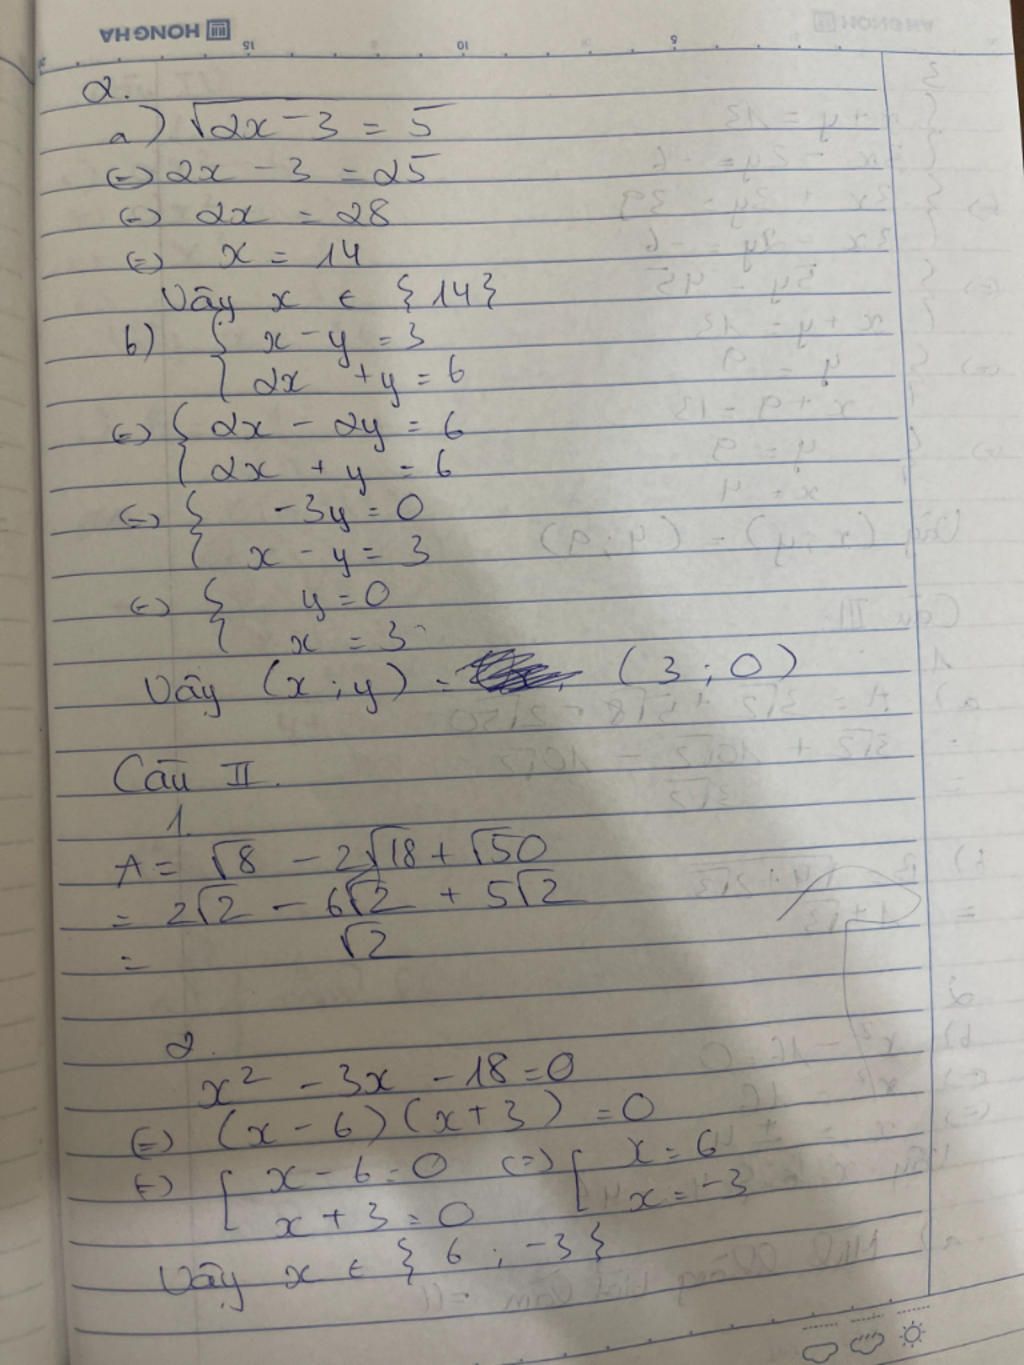 HONG HA
15 10 5
2.
a) √2x - 3 = 5
(=) 2x - 3 = 25
(=) 2x = 28
(=) x = 14
Vậy x ∈ {14}
b) { x - y = 3
{ 2x + y = 6
(=) { 2x - 2y = 6
{ 2x + y = 6
(=) { -3y = 0
{ x - y = 3
(=) { y = 0
{ x = 3
Vậy (x ; y) = (3 ; 0)
Câu II.
1.
A = √8 - 2√18 + √50
= 2√2 - 6√2 + 5√2
= √2
2.
x² - 3x - 18 = 0
(=) (x - 6)(x + 3) = 0
(=) [ x - 6 = 0 (=) [ x = 6
[ x + 3 = 0 [ x = -3
Vậy x ∈ { 6 ; -3 }